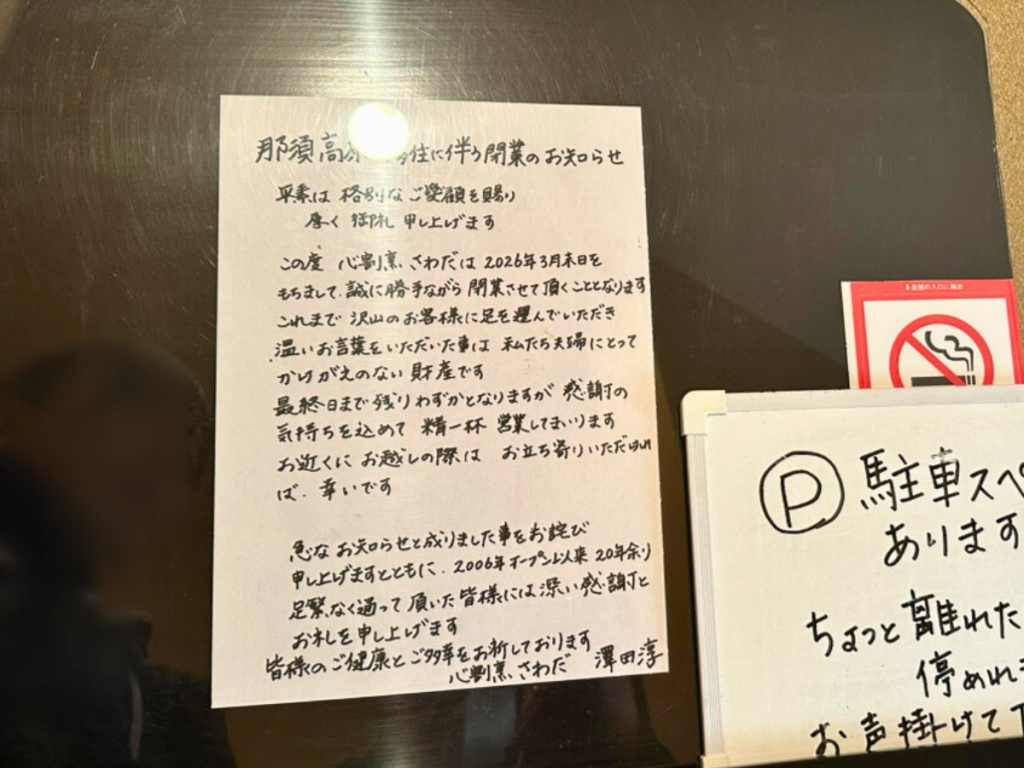 那須高原移住に伴う閉業のお知らせ
平素は 格別なご愛顧を賜り
厚く 御礼 申し上げます
この度 心割烹 さわだは 2026年3月末日を
もちまして、誠に勝手ながら 閉業させて頂くこととなります
これまで 沢山のお客様に足を運んでいただき
温いお言葉をいただいた事は 私たち夫婦にとって
かけがえのない 財産です
最終日まで 残りわずかとなりますが 感謝の
気持ちを込めて 精一杯 営業してまいります
お近くに お越しの際は お立ち寄りいただけれ
ば、幸いです
急な お知らせと成りました事をお詫び
申し上げますとともに、2006年オープン以来 20年余り
足繁なく通って 頂いた 皆様には 深い感謝と
お礼を申し上げます
皆様のご健康と ご多幸をお祈しております
心割烹 さわだ 澤田淳
店舗の入口に掲出
P 駐車スペ
あります
ちょっと 離れた
停めれ
お声掛けて下